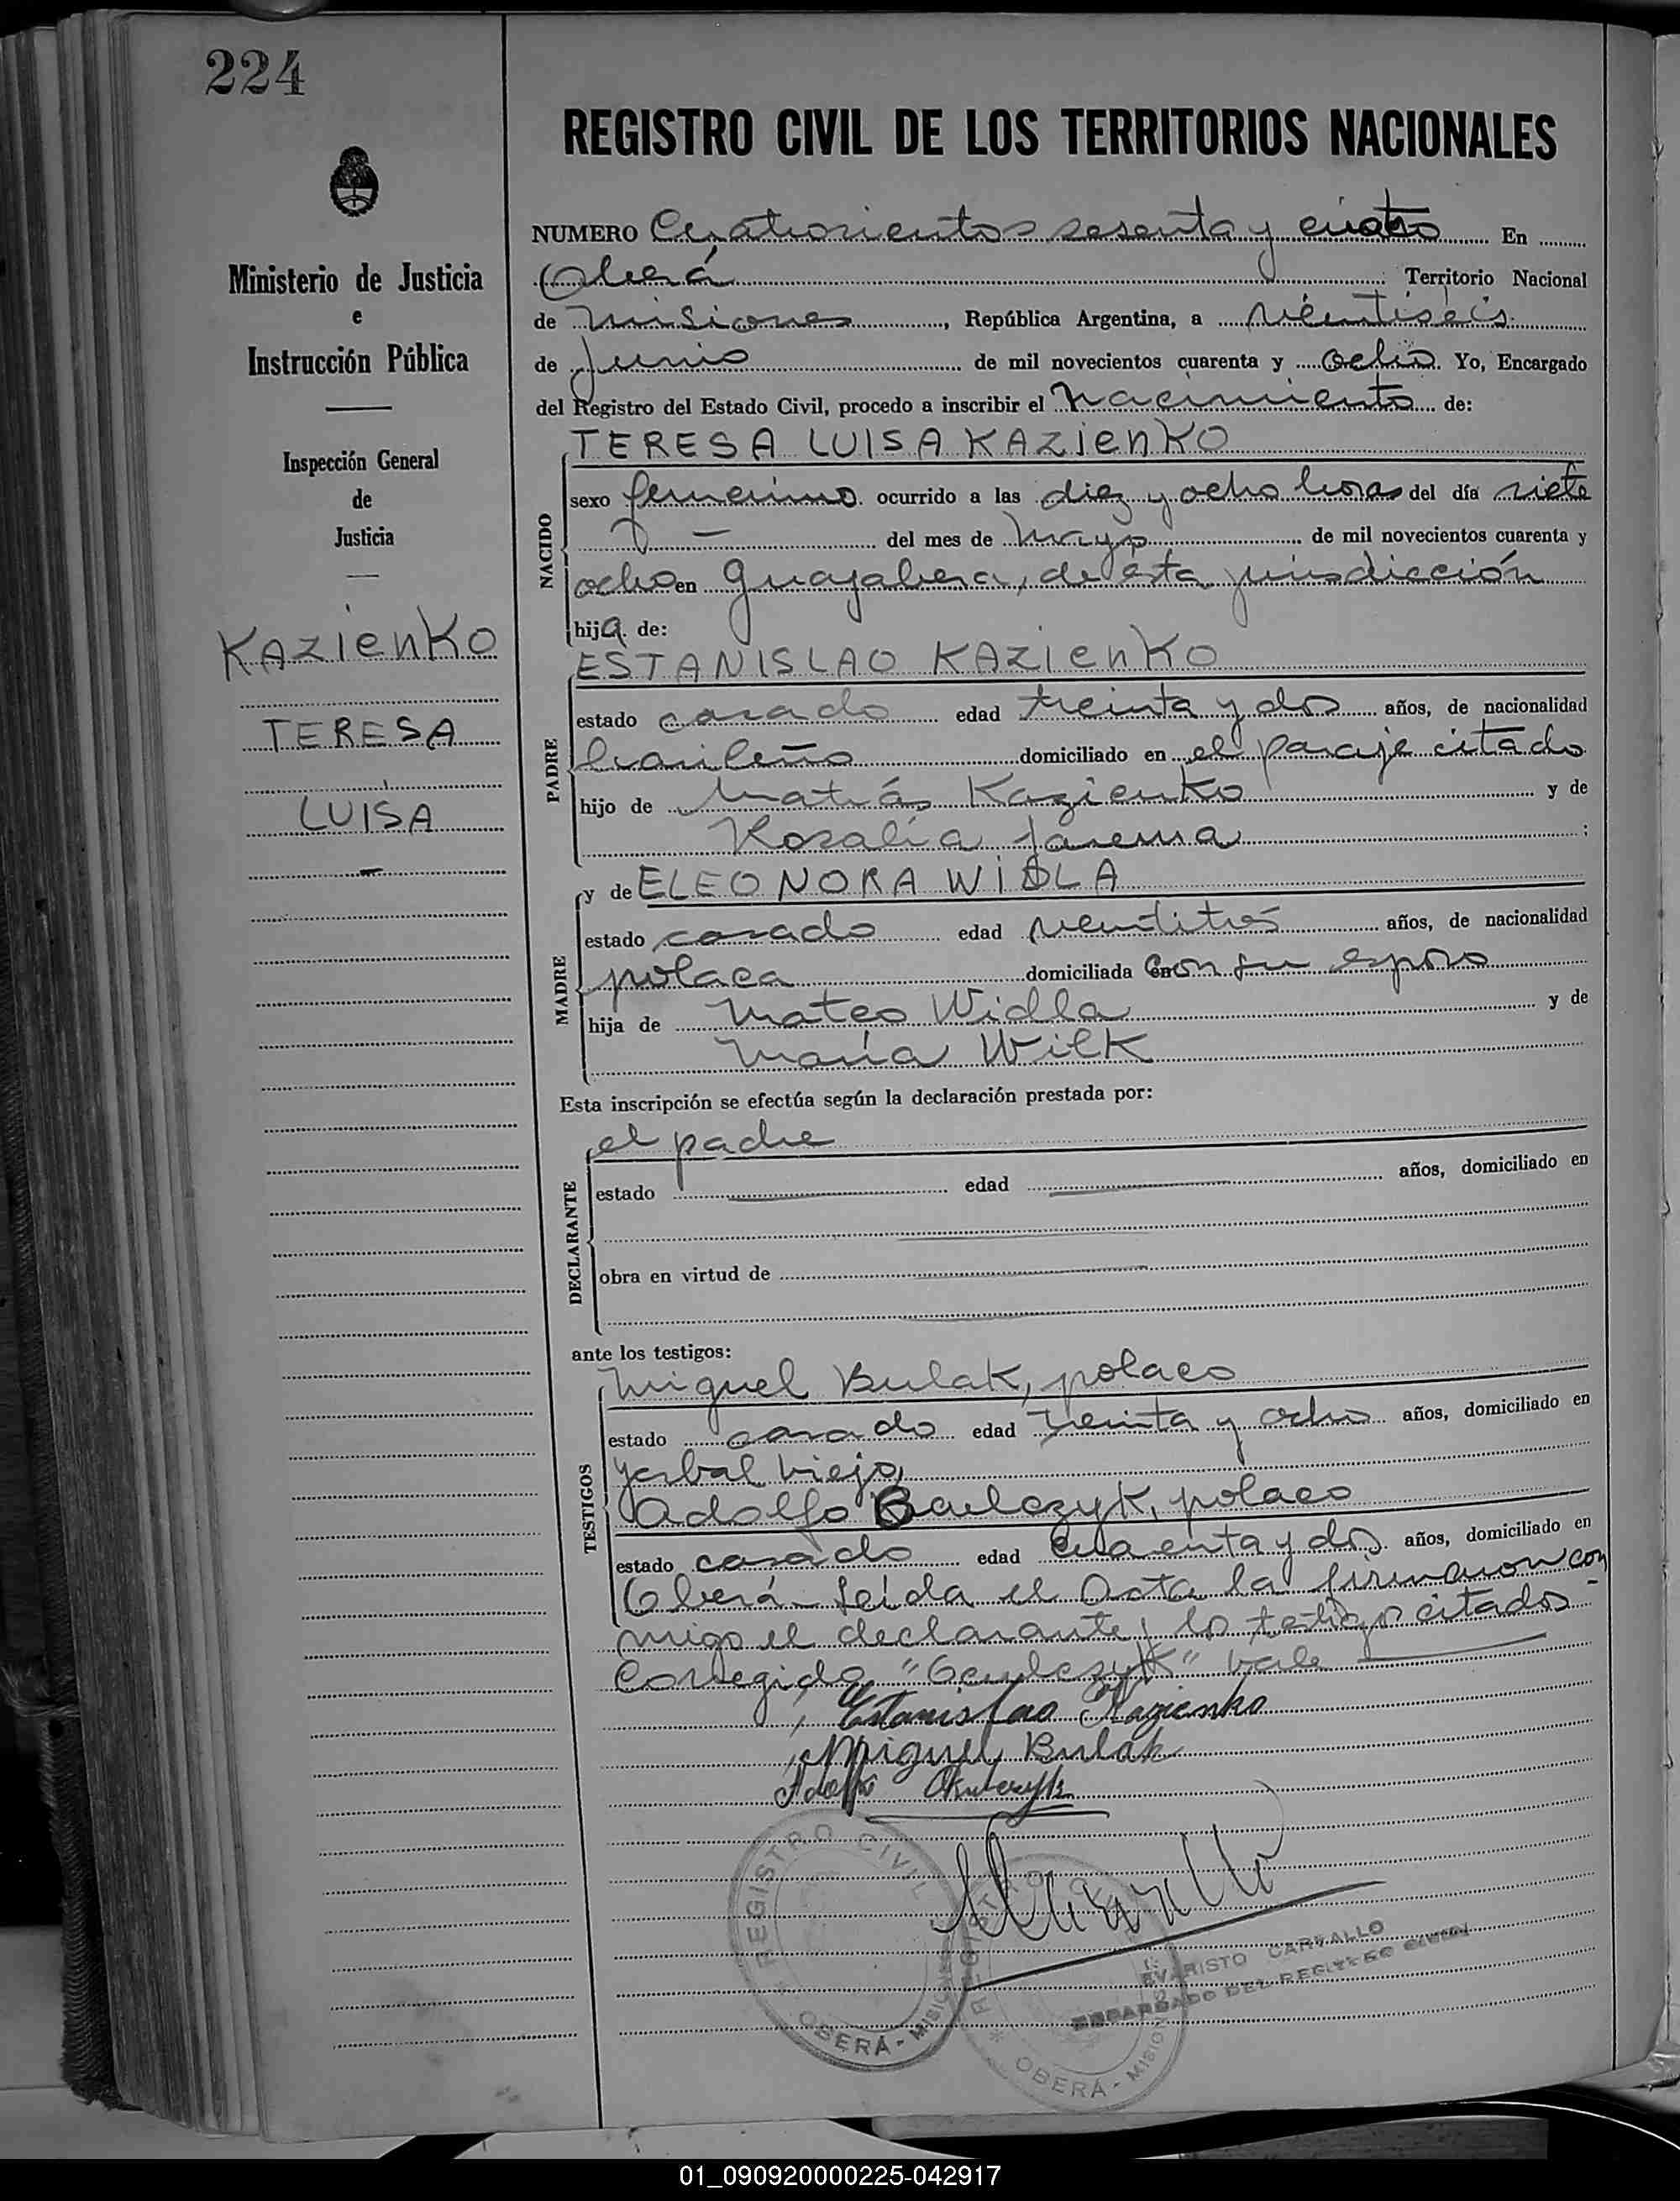 224
Ministerio de Justicia
e
Instrucción Pública
Inspección General
de
Justicia
KAZIENKO
TERESA
LUISA
REGISTRO CIVIL DE LOS TERRITORIOS NACIONALES
NUMERO Cuatrocientos sesenta y cuatro En
Oberá Territorio Nacional
de Misiones, República Argentina, a veintiséis
de Junio de mil novecientos cuarenta y ocho. Yo, Encargado
del Registro del Estado Civil, procedo a inscribir el nacimiento de:
NACIDO
TERESA LUISA KAZIENKO
sexo femenino ocurrido a las diez y ocho horas del día siete
del mes de mayo de mil novecientos cuarenta y
ocho en Guayabera, de esta jurisdicción
hija de:
PADRE
ESTANISLAO KAZIENKO
estado casado edad treinta y dos años, de nacionalidad
brasileño domiciliado en el paraje citado
hijo de Matías Kazienko y de
Rosalía Jarema;
MADRE
y de ELEONORA WIDLA
estado casado edad veintitrés años, de nacionalidad
polaca domiciliada con su esposo
hija de Mateo Widla y de
María Wilk
Esta inscripción se efectúa según la declaración prestada por:
DECLARANTE
el padre
estado edad años, domiciliado en
obra en virtud de
ante los testigos:
TESTIGOS
Miguel Bulak, polaco
estado casado edad treinta y ocho años, domiciliado en
Yerbal Viejo
Adolfo polaco
estado casado edad cuarenta y dos años, domiciliado en
Oberá - Leída el Acta la firmaron con
migo el declarante y los testigos citados -
Corregido vale
Estanislao Kazienko
Miguel Bulak
REGISTRO CIVIL
OBERÁ - MISIONES
EVARISTO CARVALLO
ENCARGADO DEL REGISTRO CIVIL
OBERÁ - MISIONES
01_090920000225-042917